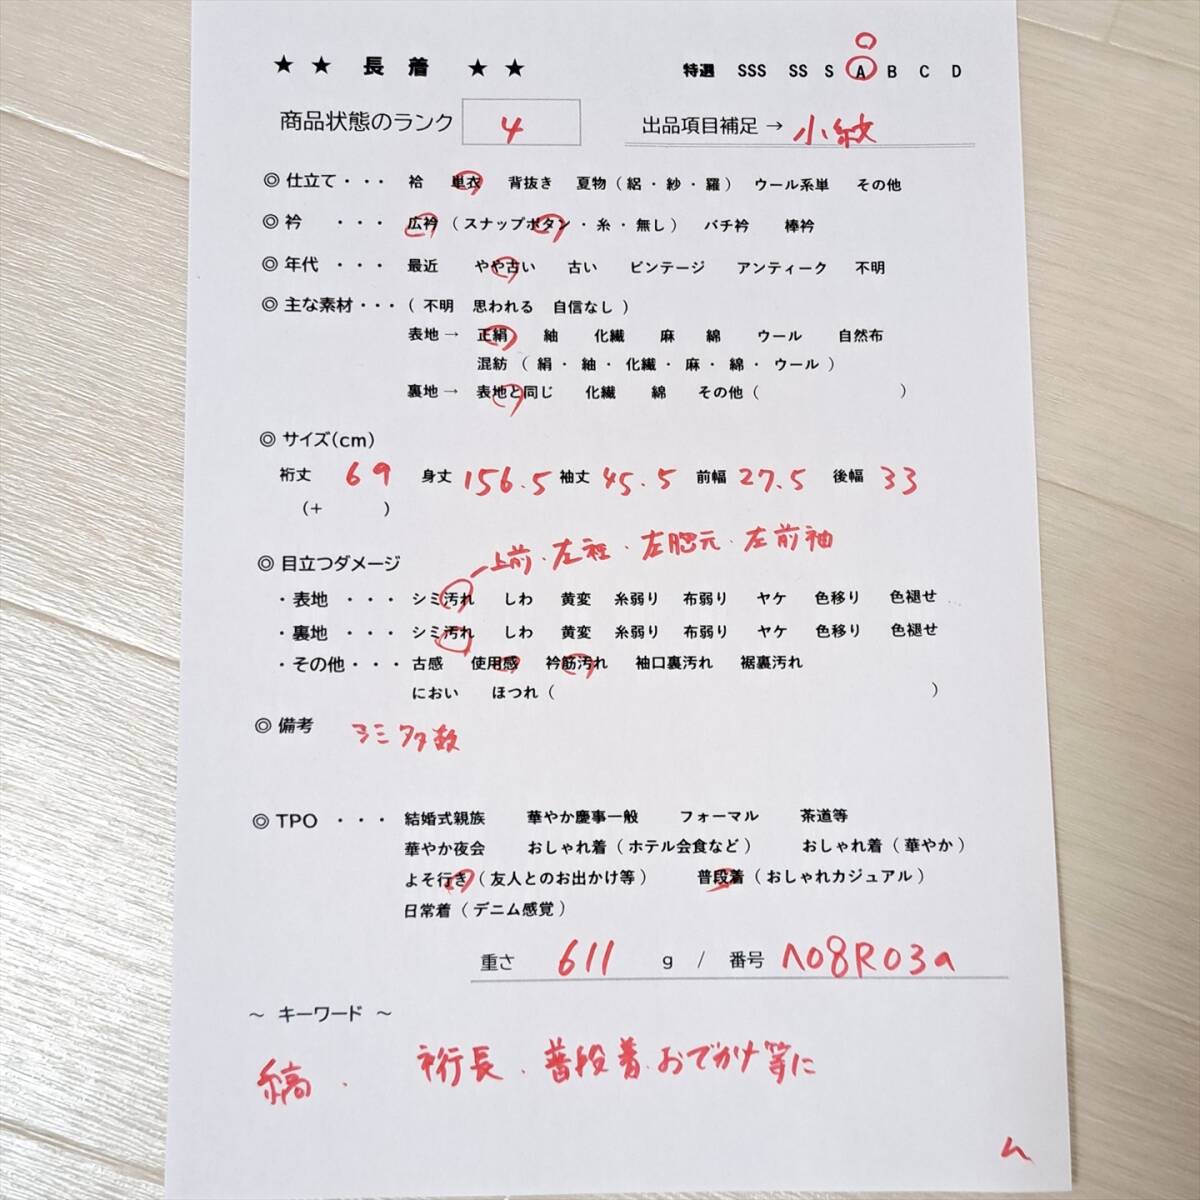 ★ ★ 長 着 ★ ★ 特選 SSS SS S A B C D
商品状態のランク 4 出品項目補足 → 小紋
◎ 仕立て・・・ 袷 単衣 背抜き 夏物（ 絽 ・ 紗 ・ 羅 ） ウール系単 その他
◎ 衿 ・・・ 広衿 （ スナップボタン ・ 糸 ・ 無し ） バチ衿 棒衿
◎ 年代 ・・・ 最近 やや古い 古い ビンテージ アンティーク 不明
◎ 主な素材・・・（ 不明 思われる 自信なし ）
表地 → 正絹 紬 化繊 麻 綿 ウール 自然布
混紡 （ 絹 ・ 紬 ・ 化繊 ・ 麻 ・ 綿 ・ ウール ）
裏地 → 表地と同じ 化繊 綿 その他（ ）
◎ サイズ(cm)
裄丈 69 身丈 156.5 袖丈 45.5 前幅 27.5 後幅 33
（+ ）
上前・左衽・左胸元・左前袖
◎ 目立つダメージ
・表地 ・・・ シミ汚れ しわ 黄変 糸弱り 布弱り ヤケ 色移り 色褪せ
・裏地 ・・・ シミ汚れ しわ 黄変 糸弱り 布弱り ヤケ 色移り 色褪せ
・その他・・・ 古感 使用感 衿筋汚れ 袖口裏汚れ 裾裏汚れ
におい ほつれ（ ）
◎ 備考 シミ多数
◎ TPO ・・・ 結婚式親族 華やか慶事一般 フォーマル 茶道等
華やか夜会 おしゃれ着（ ホテル会食など ） おしゃれ着（ 華やか ）
よそ行き（ 友人とのお出かけ等 ） 普段着（ おしゃれカジュアル ）
日常着（ デニム感覚 ）
重さ 611 g / 番号 A08R03a
～ キーワード ～
縞 ・ 裄長 ・ 普段着・おでかけ等に
ム